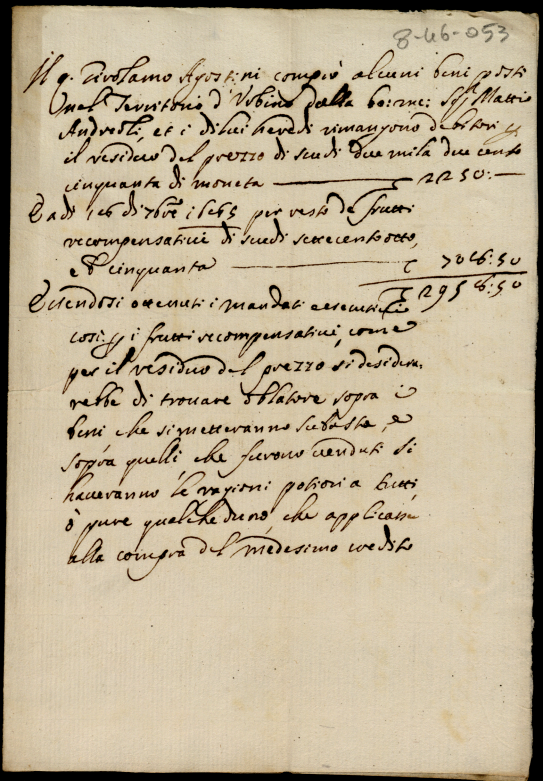 8-46-053
Il q. Girolamo Agostini comprò alcuni beni posti
nel Territorio d'Urbino dalla bo: me: Sig.r Mattio
Andreoli, et i di lui heredi rimangono debitori p
il residuo del prezzo di scudi due mila due cento
cinquanta di moneta — 2250:—
E a di 16 di 7bre 1665 per resto de frutti
recompensativi di scudi settecento otto,
e b cinquanta — 708:50
2958:50
Essendosi ottenuti i mandati essecutivi
così p i frutti recompensativi, come
per il residuo del prezzo si desidera-
rebbe di trovare oblatore sopra i
beni che si metteranno subasta, e
sopra quelli che furono venduti si
haveranno le ragioni potiori a tutti
ò pure qualcheduno, che applicasse
alla compra del medesimo credito